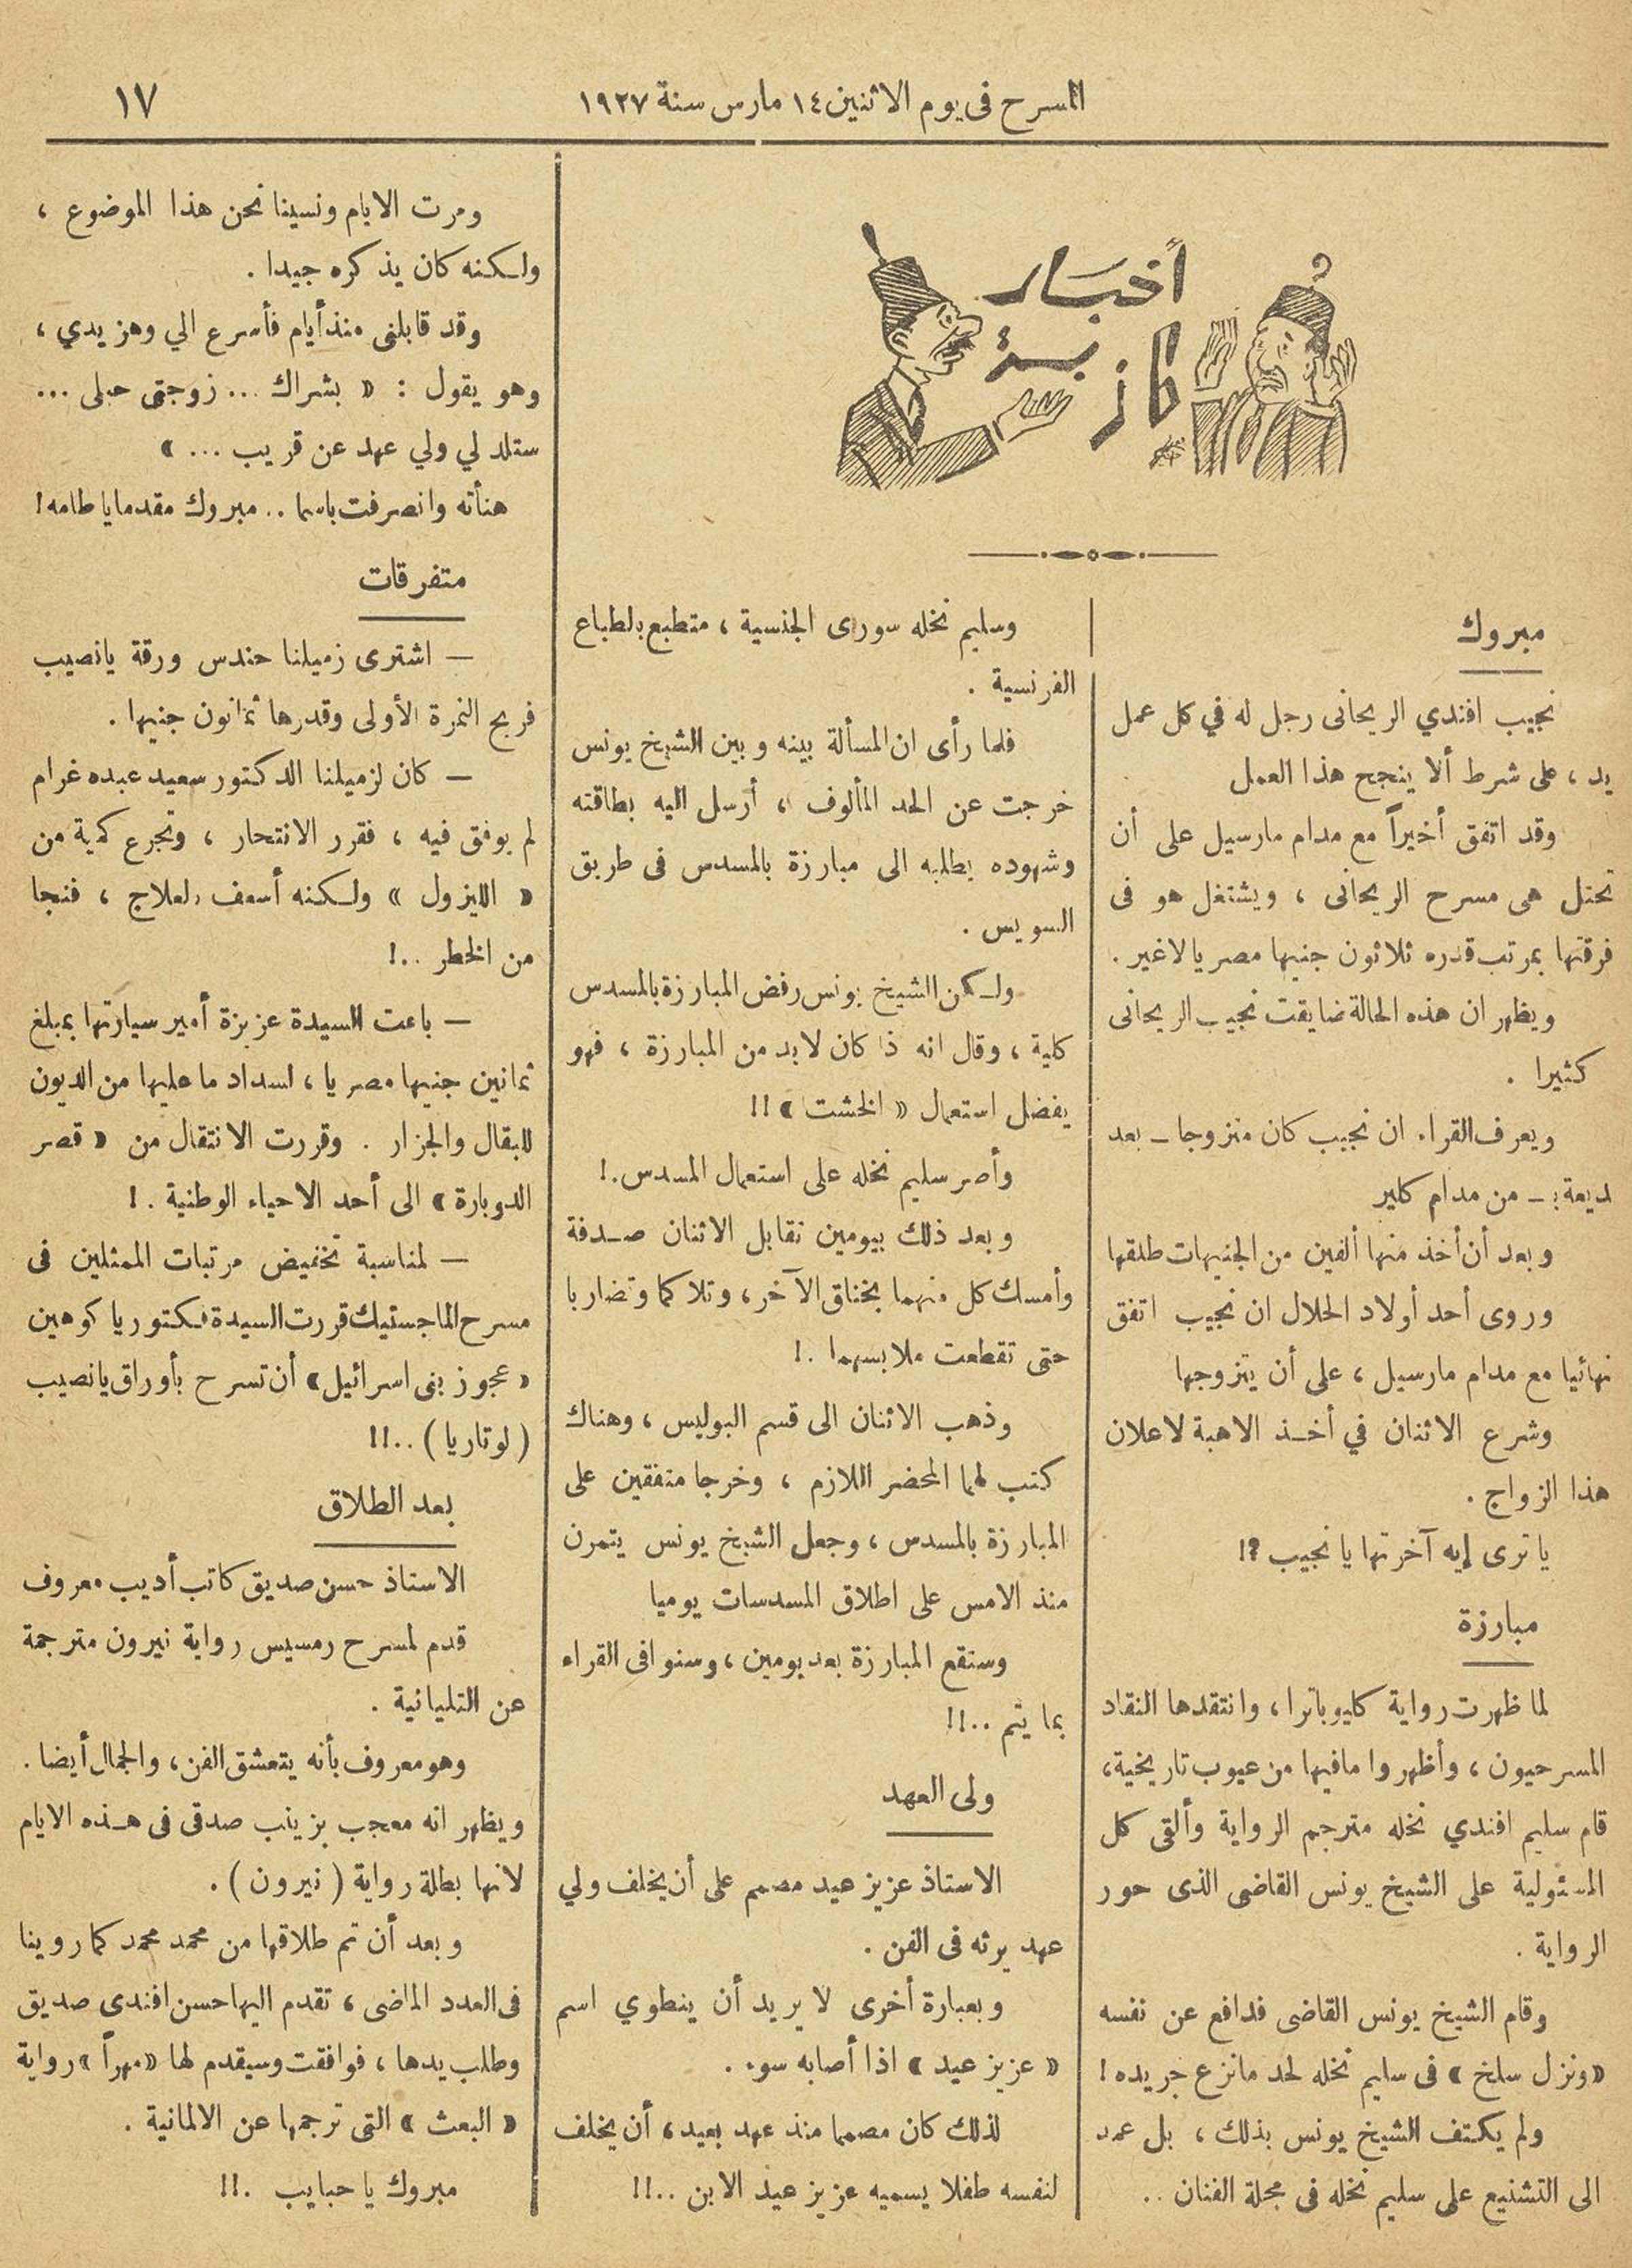 المسرح فى يوم الاثنين ١٤ مارس سنة ١٩٢٧
١٧
أخبار
كازبة
مبروك
نجيب افندي الريحانى رجل له في كل عمل
يد ، على شرط ألا ينجح هذا العمل
وقد اتفق أخيراً مع مدام مارسيل على أن
تحتل هى مسرح الريحانى ، ويشتغل هو فى
فرقتها بمرتب قدره ثلاثون جنيها مصريا لاغير .
ويظهر ان هذه الحالة ضايقت نجيب الريحانى
كثيرا .
ويعرف القراء ان نجيب كان متزوجا ـ بعد
لديعة : ـ من مدام كلير
وبعد أن أخذ منها ألفين من الجنيهات طلقها
وروى أحد أولاد الحلال ان نجيب اتفق
نهائيا مع مدام مارسيل ، على أن يتزوجها
وشرع الاثنان في أخـذ الاهبة لاعلان
هذا الزواج .
يا ترى إيه آخرتها يا نجيب ؟!
مبارزة
لما ظهرت رواية كليوباترا ، وانتقدها النقاد
المسرحيون ، وأظهروا مافيها من عيوب تاريخية ،
قام سليم افندي نخله مترجم الرواية وألقى كل
المسئولية على الشيخ يونس القاضى الذى حور
الرواية .
وقام الشيخ يونس القاضى فدافع عن نفسه
« ونزل سلخ » فى سليم نخله لحد مانزع جريده !
ولم يكتف الشيخ يونس بذلك ، بل عمد
الى التشنيع على سليم نخله فى مجلة الفنان ..
وسليم نخله سورى الجنسية ، متطبع بالطباع
الفرنسية .
فلما رأى ان المسألة بينه وبين الشيخ يونس
خرجت عن الحد المألوف ، أرسل اليه بطاقته
وشهوده يطلبه الى مبارزة بالمسدس فى طريق
السويس .
ولـكن الشيخ يونس رفض المبارزة بالمسدس
كلية ، وقال انه ذا كان لابد من المبارزة ، فهو
يفضل استعمال « الخشت » !!
وأصر سليم نخله على استعمال المسدس .!
وبعد ذلك بيومين تقابل الاثنان صـدفة
وأمسك كل منهما بخناق الآخر ، وتلاكما وتضاربا
حتى تقطعت ملابسهما .!
وذهب الاثنان الى قسم البوليس ، وهناك
كتب لهما المحضر اللازم ، وخرجا متفقين على
المبارزة بالمسدس ، وجعل الشيخ يونس يتمرن
منذ الامس على اطلاق المسدسات يوميا
وستقع المبارزة بعد يومين ، وسنوافى القراء
بما يتم ..!!
ولى العهد
الاستاذ عزيز عيد مصمم على أن يخلف ولي
عهد يرثه فى الفن .
وبعبارة أخرى لا يريد أن ينطوي اسم
« عزيز عيد » اذا أصابه سوء .
لذلك كان مصمما منذ عهد بعيد ، أن يخلف
لنفسه طفلا يسميه عزيز عيد الابن ..!!
ومرت الايام ونسينا نحن هذا الموضوع ،
ولـكنه كان يذكره جيدا .
وقد قابلنى منذ أيام فأسرع الي وهز يدي ،
وهو يقول : « بشراك ... زوجتى حبلى ...
ستلد لي ولي عهد عن قريب ... »
هنأته وانصرفت باسما .. مبروك مقدما ياطامه !
متفرقات
— اشترى زميلنا حندس ورقة يانصيب
فربح النمرة الأولى وقدرها ثمانون جنيها .
— كان لزميلنا الدكتور سعيد عبده غرام
لم يوفق فيه ، فقرر الانتحار ، وتجرع كمية من
« الليزول » ولـكنه أسعف بالعلاج ، فنجا
من الخطر ..!
— باعت السيدة عزيزة أمير سيارتها بمبلغ
ثمانين جنيها مصريا ، لسداد ما عليها من الديون
للبقال والجزار . وقررت الانتقال من « قصر
الدوبارة » الى أحد الاحياء الوطنية .!
— لمناسبة تخفيض مرتبات الممثلين فى
مسرح الماجستيك قررت السيدة فكتوريا كوهين
« عجوز بنى اسرائيل » أن تسرح بأوراق يانصيب
( لوتاريا ) ..!!
بعد الطلاق
الاستاذ حسن صديق كاتب أديب معروف
قدم لمسرح رمسيس رواية نيرون مترجمة
عن التليانية .
وهو معروف بأنه يتعشق الفن ، والجمال أيضا .
ويظهر انه معجب بزينب صدقى فى هـذه الايام
لانها بطلة رواية ( نيرون ) .
وبعد أن تم طلاقها من محمد محمد كما روينا
فى العدد الماضى ، تقدم اليها حسن افندى صديق
وطلب يدها ، فوافقت وسيقدم لها « مهراً » رواية
« البعث » التى ترجمها عن الالمانية .
مبروك يا حبايب .!!